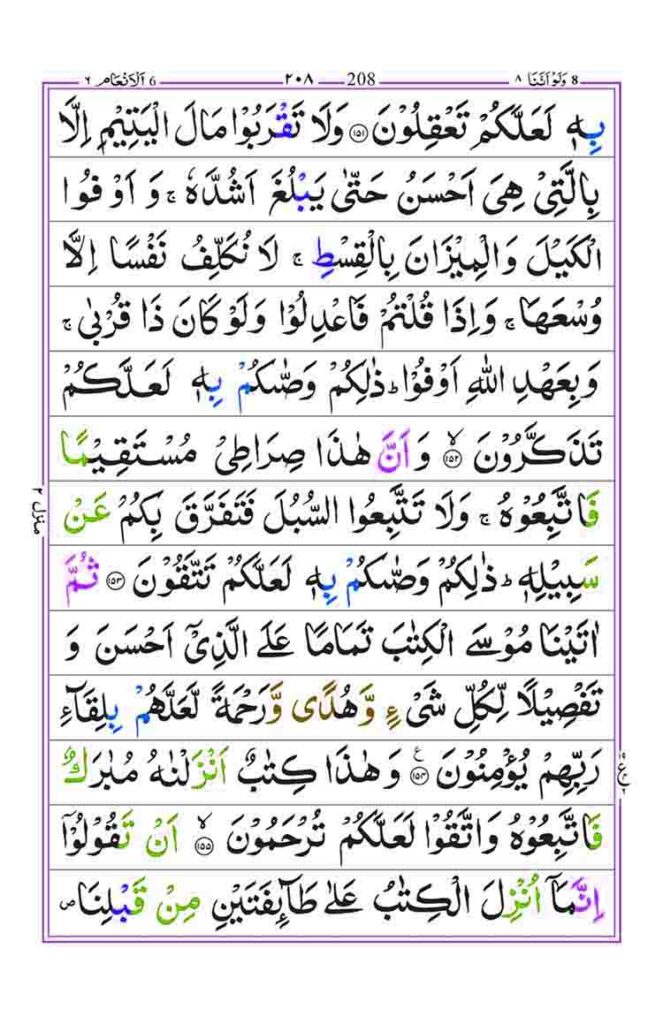 ٨ وَلَوْ اَنَّنَا 8 208 ٢٠٨ ٦ اَلْاَنْعَام 6
بِهٖ لَعَلَّكُمْ تَعْقِلُوْنَ ﴿١٥١﴾ وَلَا تَقْرَبُوْا مَالَ الْيَتِيْمِ اِلَّا
بِالَّتِيْ هِيَ اَحْسَنُ حَتّٰى يَبْلُغَ اَشُدَّهٗ ۚ وَ اَوْفُوا
الْكَيْلَ وَالْمِيْزَانَ بِالْقِسْطِ ۚ لَا نُكَلِّفُ نَفْسًا اِلَّا
وُسْعَهَا ۚ وَاِذَا قُلْتُمْ فَاعْدِلُوْا وَلَوْ كَانَ ذَا قُرْبٰى ۚ
وَبِعَهْدِ اللّٰهِ اَوْفُوْا ؕ ذٰلِكُمْ وَصّٰىكُمْ بِهٖ لَعَلَّكُمْ
تَذَكَّرُوْنَ ﴿١٥٢﴾ۙ وَ اَنَّ هٰذَا صِرَاطِيْ مُسْتَقِيْمًا
فَاتَّبِعُوْهُ ۚ وَلَا تَتَّبِعُوا السُّبُلَ فَتَفَرَّقَ بِكُمْ عَنْ
سَبِيْلِهٖ ؕ ذٰلِكُمْ وَصّٰىكُمْ بِهٖ لَعَلَّكُمْ تَتَّقُوْنَ ﴿١٥٣﴾ ثُمَّ
اٰتَيْنَا مُوْسَى الْكِتٰبَ تَمَامًا عَلَى الَّذِيْٓ اَحْسَنَ وَ
تَفْصِيْلًا لِّكُلِّ شَيْءٍ وَّهُدًى وَّرَحْمَةً لَّعَلَّهُمْ بِلِقَآءِ
رَبِّهِمْ يُؤْمِنُوْنَ ﴿١٥٤﴾ع وَهٰذَا كِتٰبٌ اَنْزَلْنٰهُ مُبٰرَكٌ
فَاتَّبِعُوْهُ وَاتَّقُوْا لَعَلَّكُمْ تُرْحَمُوْنَ ﴿١٥٥﴾ۙ اَنْ تَقُوْلُوْٓا
اِنَّمَآ اُنْزِلَ الْكِتٰبُ عَلٰى طَآئِفَتَيْنِ مِنْ قَبْلِنَا ۪
منزل ٢